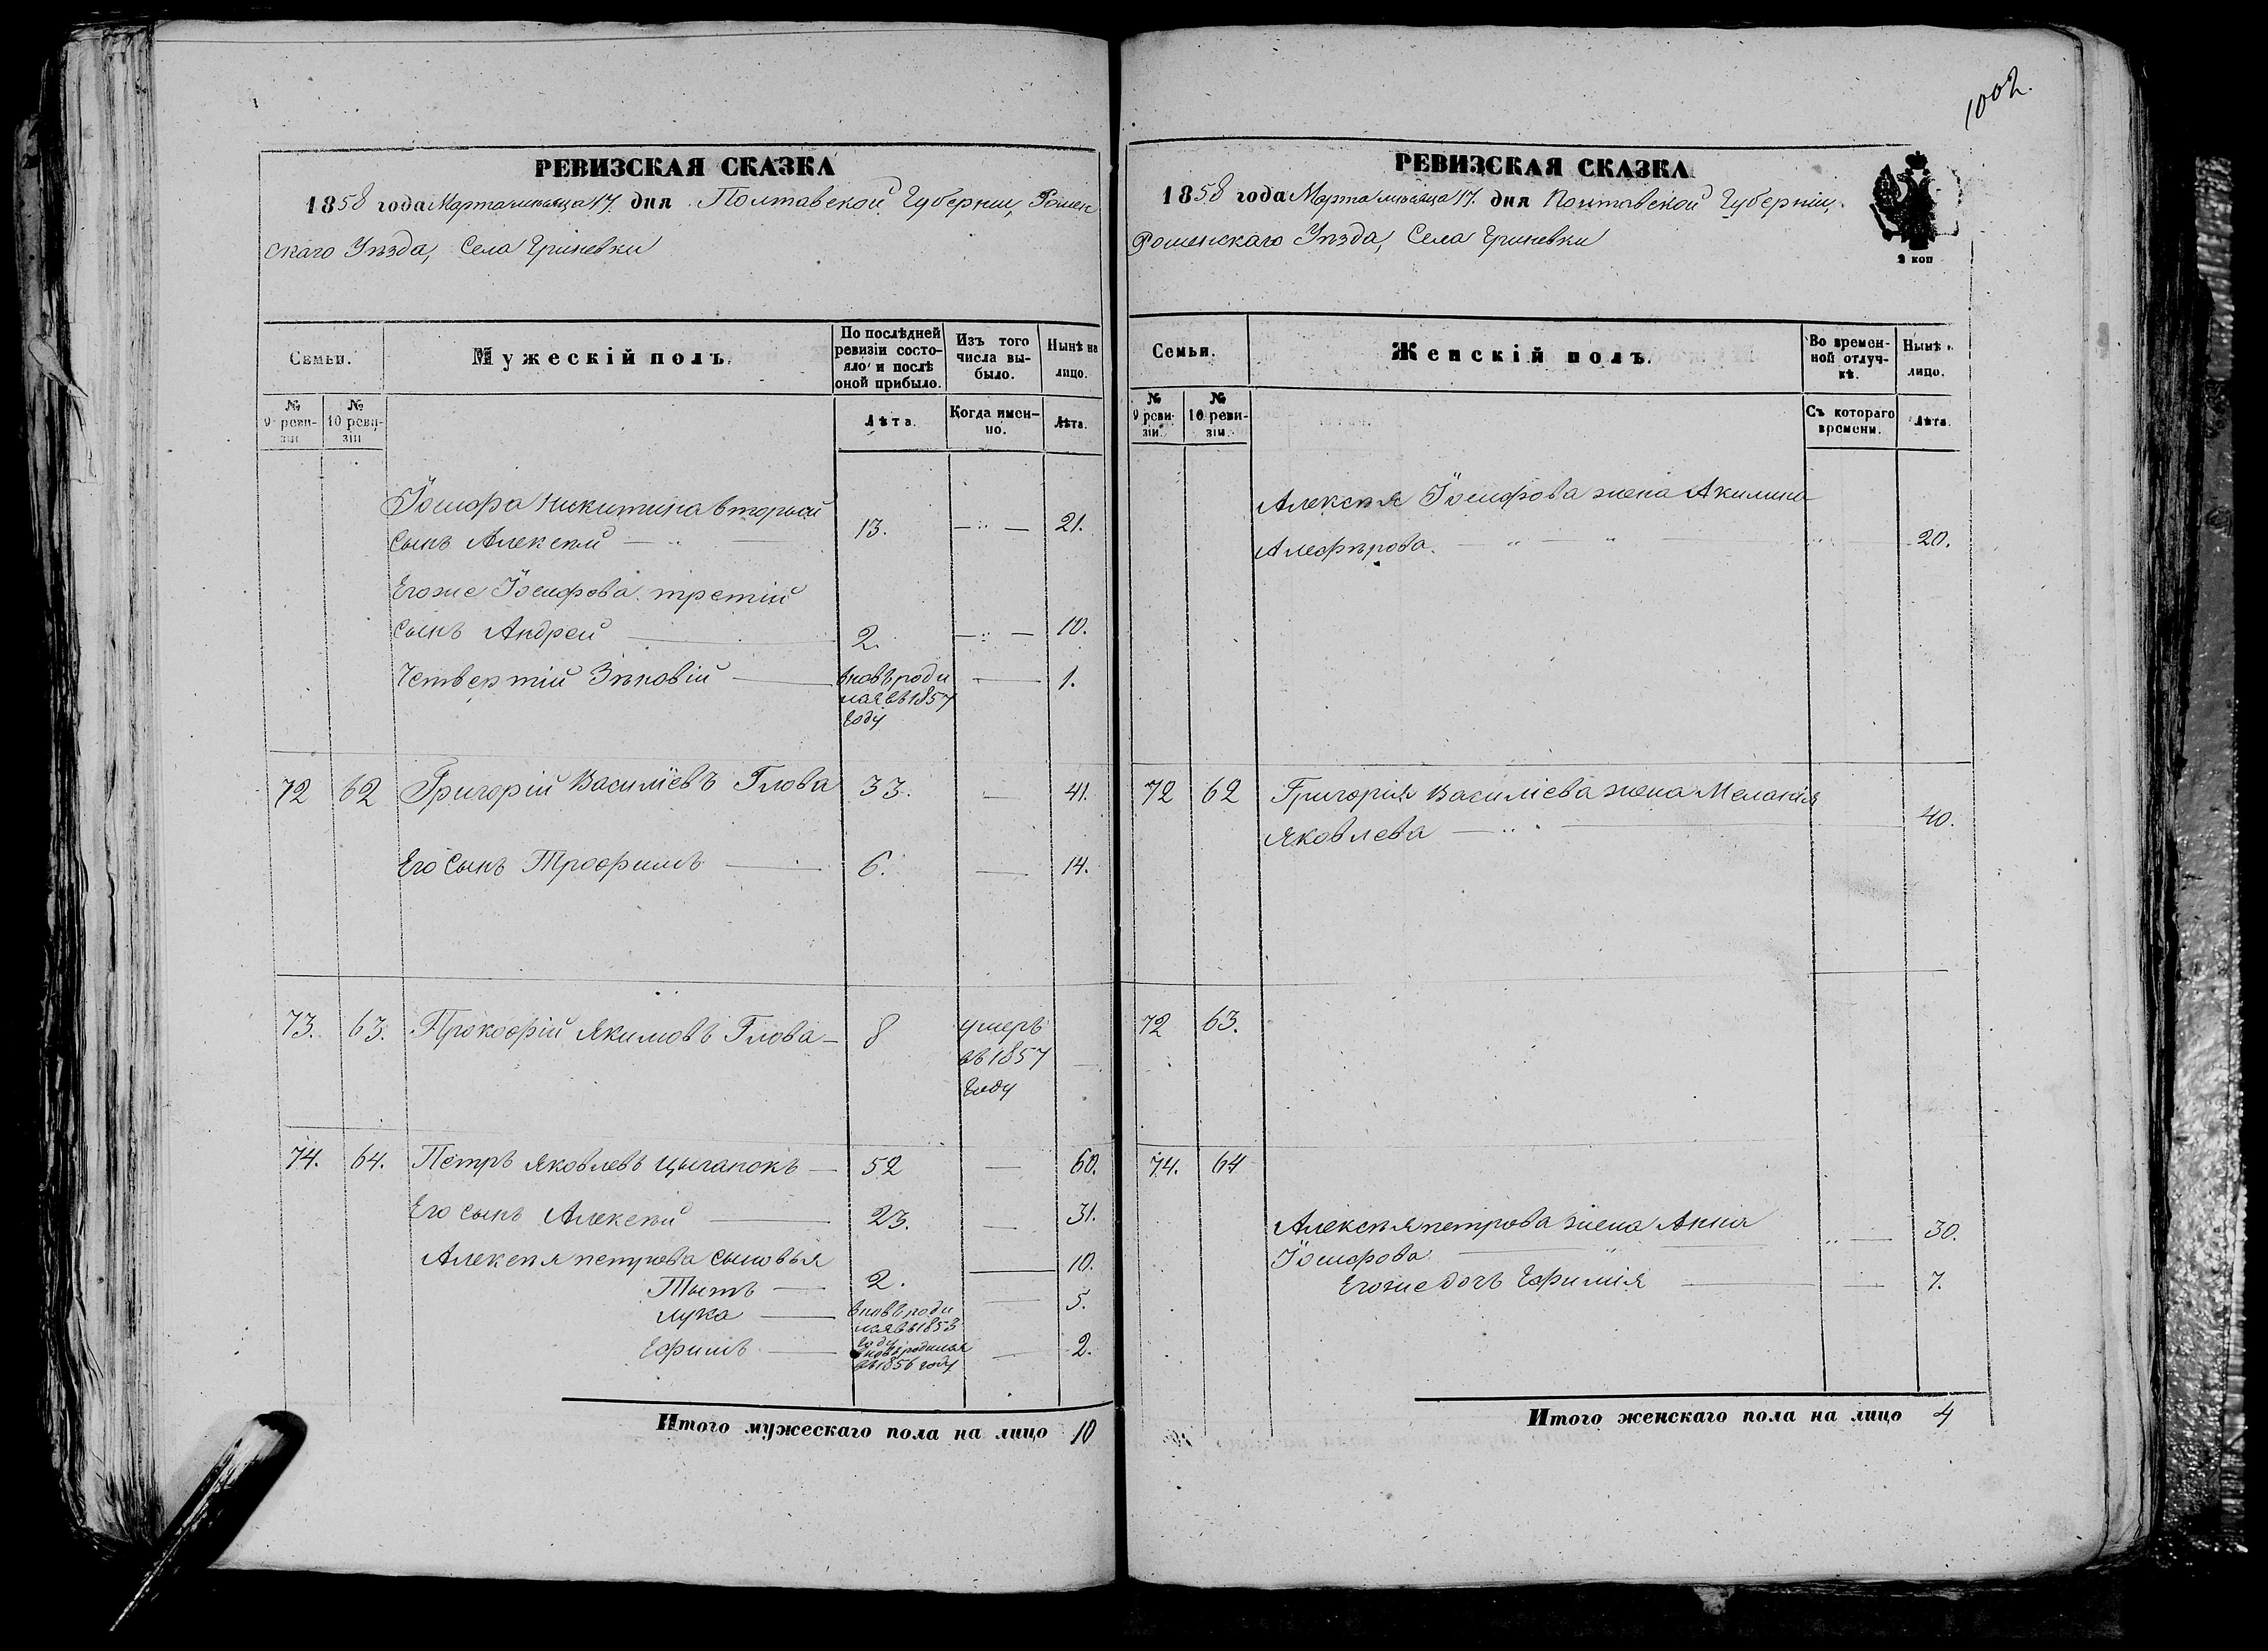 1002.
РЕВИЗСКАЯ СКАЗКА
1858 года Марта месяца 17. дня Полтавской Губернии, Ромен
скаго Уѣзда, Села Гриневки
Семьи.
Мужескій полъ.
По послѣдней ревизіи состояло и послѣ оной прибыло.
Изъ того числа выбыло.
Нынѣ на лицо.
№ 9 ревизіи
№ 10 ревизіи
Лѣта.
Когда именно.
Лѣта.
Іосифа Никитина второй
сынъ Алексѣй — 13. — 21.
Егоже Іосифова третій
сынъ Андрей — 2. — 10.
Четвертій Зѣновій — вновь роди — 1.
лся въ 1857
году
72 62 Григорій Василіевъ Глова 33. — 41.
Его сынъ Трофимъ — 6. — 14.
73. 63. Прокофій Якимовъ Глова — 8 умеръ —
въ 1857
году
74. 64. Петръ Яковлевъ Цыганокъ — 52 — 60.
Его сынъ Алексѣй — 23. — 31.
Алексѣя петрова сыновья
Тытъ — 2. — 10.
Лука — вновь роди — 5.
лся въ 1853
году
Ефимъ — вновь родился — 2.
въ 1856 году
Итого мужескаго пола на лицо 10
РЕВИЗСКАЯ СКАЗКА
1858 года Марта месяца 17. дня Полтавской Губерніи,
Роменскаго Уѣзда, Села Гриневки
2 коп
Семьи.
Женскій полъ.
Во временной отлучкѣ.
Нынѣ лицо.
№ 9 ревизіи.
№ 10 ревизіи.
Съ котораго времени.
Лѣта.
Алексѣя Іосифова жена Акилина
Алефѣрова. — 20.
72 62 Григорія Василіева жена Меланія
Яковлева — 40.
72 63.
74. 64
Алексѣя петрова жена Анна — 30.
Іосифова
Егоже дочь Ефимія — 7.
Итого женскаго пола на лицо 4